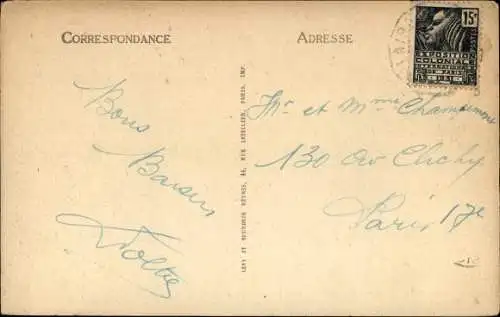 CORRESPONDANCE
ADRESSE
15c
POSTES
EXPOSITION
COLONIALE
INTERNATIONALE
PARIS
1931
Bons
Baisers
Mr et Mme
130 Av Clichy
Paris 17e
LEVY ET NEURDEIN RÉUNIS, 44, RUE LETELLIER, PARIS, IMP.